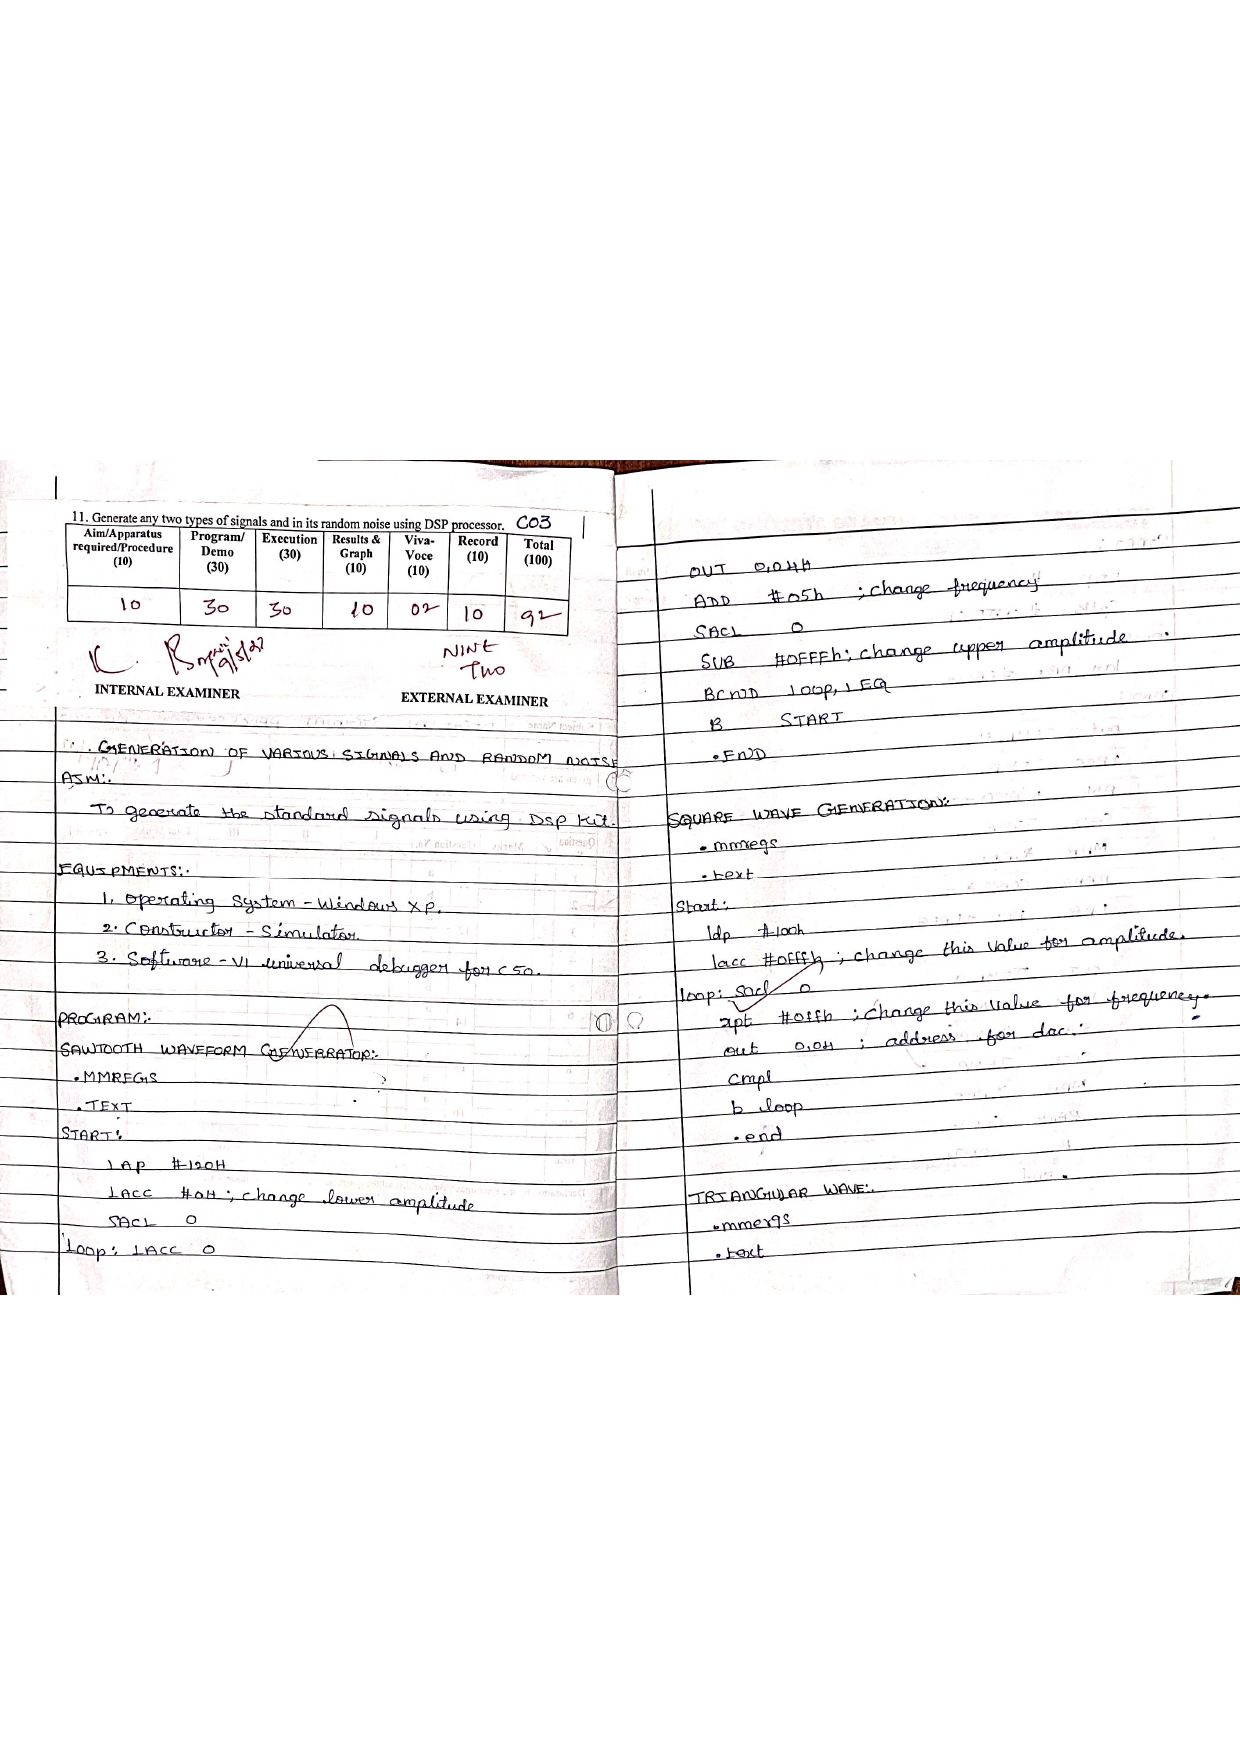 11. Generate any two types of signals and in its random noise using DSP processor. CO3
Aim/Apparatus required/Procedure (10) Program/ Demo (30) Execution (30) Results & Graph (10) Viva-Voce (10) Record (10) Total (100)
10 30 30 10 02 10 92
NINE
TWO
INTERNAL EXAMINER EXTERNAL EXAMINER
GENERATION OF VARIOUS SIGNALS AND RANDOM NOISE
AIM:-
To generate the standard signals using DSP Kit.
EQUIPMENTS:-
1. Operating System - Windows XP.
2. Constructor - Simulator.
3. Software - VI universal debugger for C50.
PROGRAM:-
SAWTOOTH WAVEFORM GENERRATOR:-
.MMREGS
.TEXT
START:
LAP #120H
LACC #0H ; change lower amplitude
SACL 0
Loop: LACC 0
OUT 0,04H
ADD #05h ; change frequency
SACL 0
SUB #0FFFh; change upper amplitude
BCND Loop, LEQ
B START
.END
SQUARE WAVE GENERATION:-
.mmregs
.text
Start:
ldp #100h
lacc #0fffh ; change this value for amplitude.
loop: sacl 0
rpt #0ffh ; change this value for frequency.
out 0,04 ; address for dac.
cmpl
b loop
.end
TRIANGULAR WAVE:-
.mmergs
.text